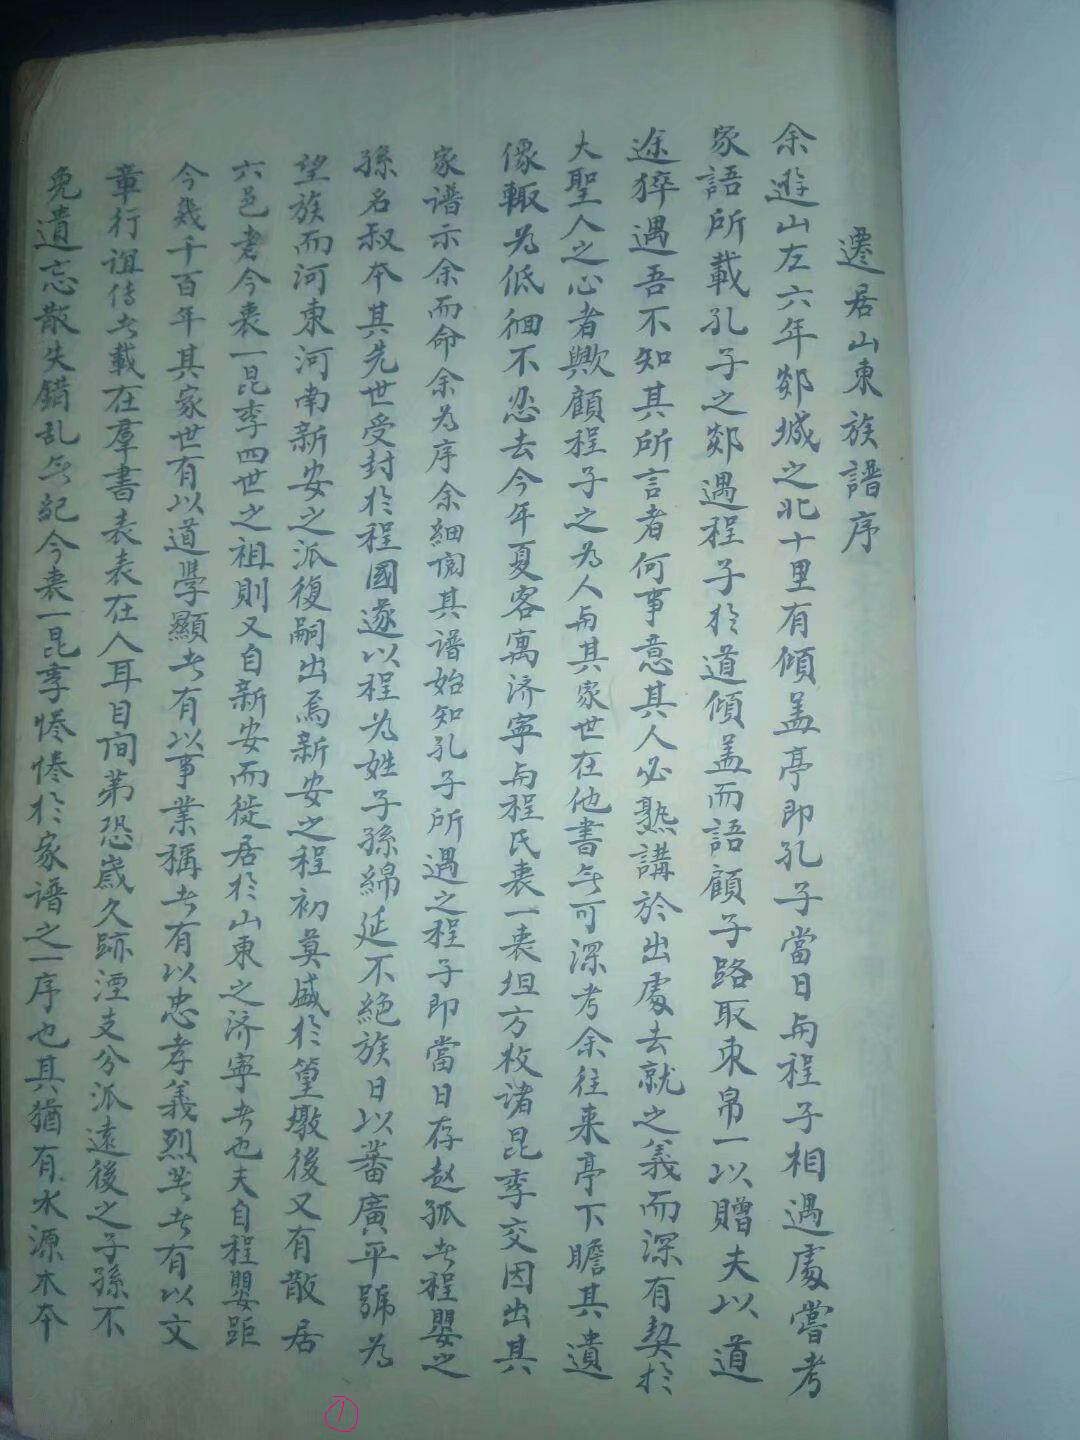 遷居山東族譜序
余遊山左六年郯城之北十里有傾盖亭即孔子當日与程子相遇處嘗考
家語所載孔子之郯遇程子於道傾盖而語顧子路取束帛一以贈夫以道
途猝遇吾不知其所言者何事意其人必熟講於出處去就之義而深有契於
大聖人之心者歟顧程子之為人与其家世在他書无可深考余往来亭下瞻其遺
像輙为低徊不忍去今年夏客寓济寧与程氏衷一衷坦方牧诸昆季交因出其
家谱示余而命余为序余細阅其谱始知孔子所遇之程子即當日存赵孤者程嬰之
孫名叔本其先世受封於程國遂以程为姓子孫綿延不絕族日以蕃廣平號为
望族而河東河南新安之派復嗣出焉新安之程初莫盛於篁墩後又有散居
六邑者今衷一昆季四世之祖則又自新安而徙居於山東之济寧者也夫自程嬰距
今幾千百年其家世有以道學顯者有以事業稱者有以忠孝義烈著者有以文
章行谊传者載在羣書表表在人耳目间第恐歲久跡湮支分派遠後之子孫不
免遺忘散失錯乱无紀今衷一昆季惓惓於家谱之一序也其猶有水源木本
1